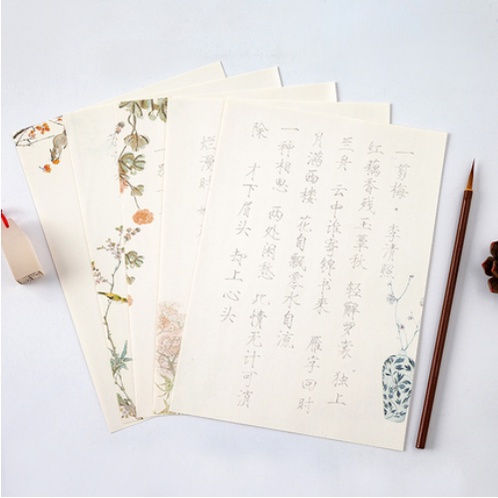 一剪梅·李清照
红藕香残玉簟秋 轻解罗裳 独上
兰舟 云中谁寄锦书来 雁字回时
月满西楼 花自飘零水自流
一种相思 两处闲愁 此情无计可消
除 才下眉头 却上心头
烂漫时